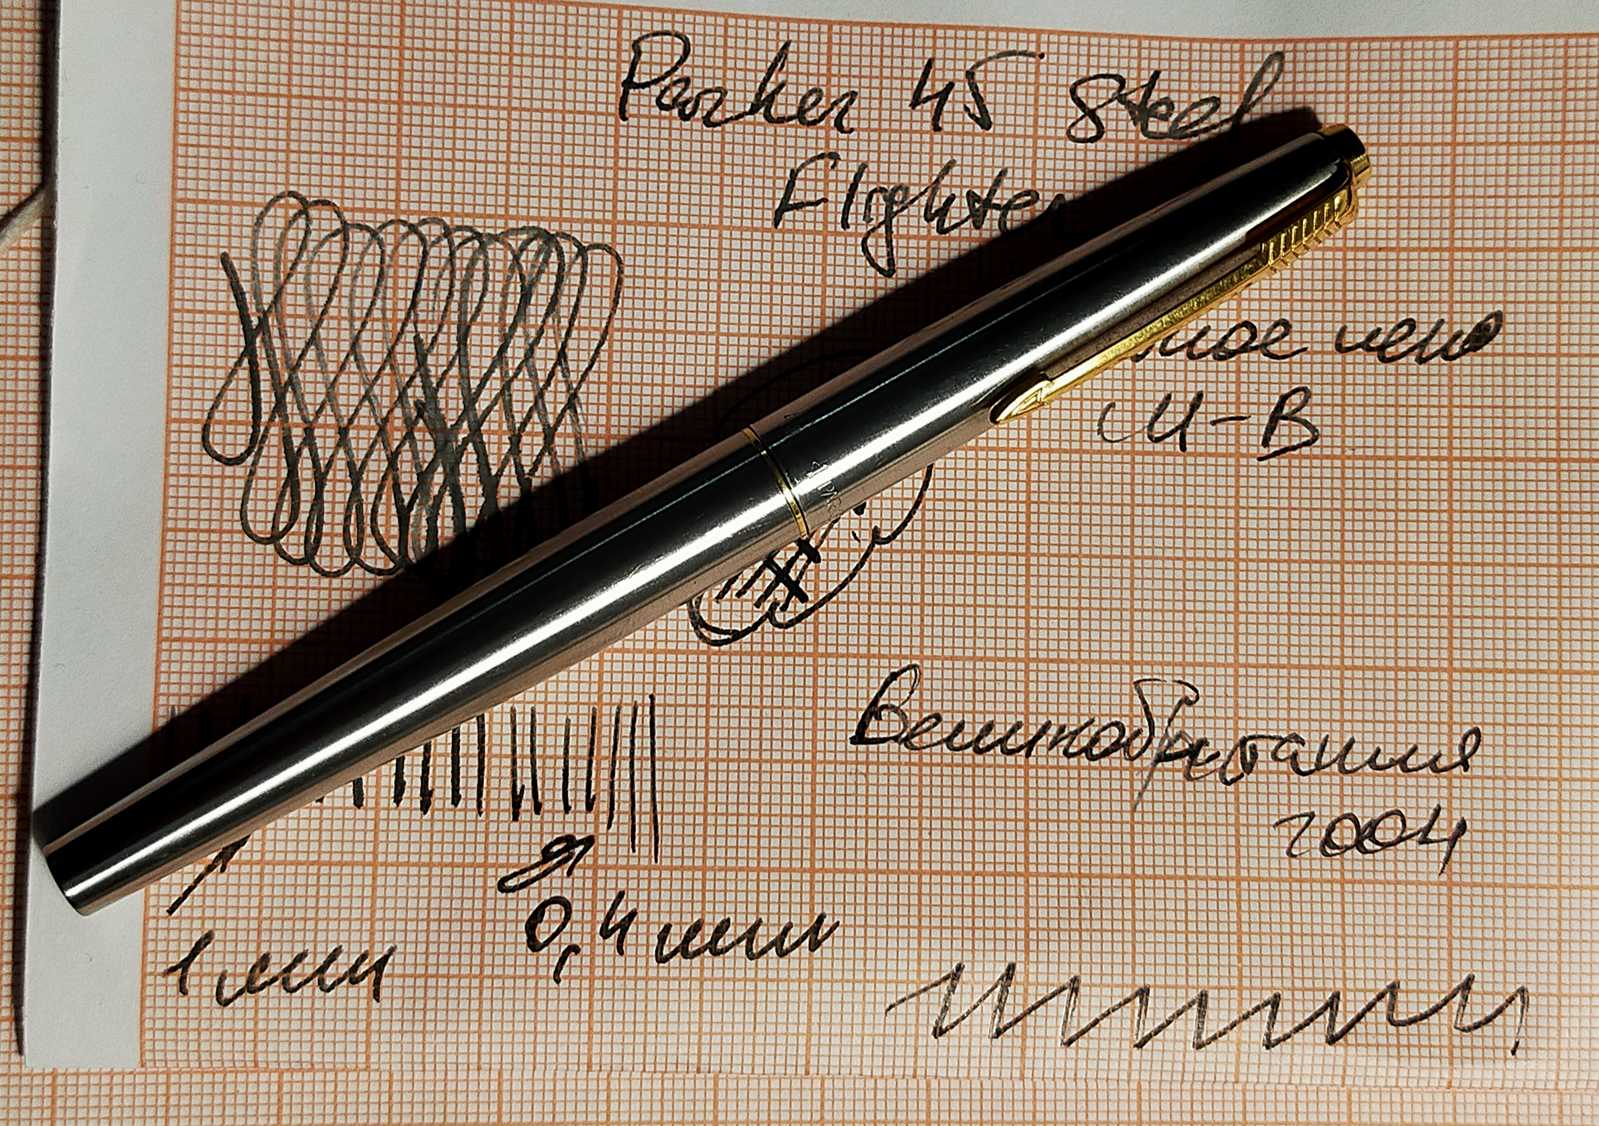 Parker 45 Steel
Flighter
перо
M-B
Великобритания
1 мм
0,4 мм